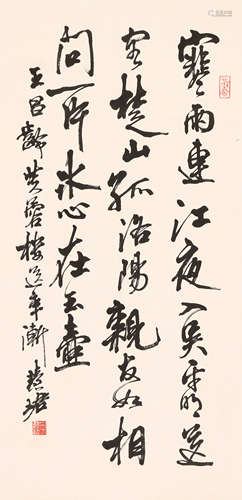 寒雨連江夜入吳平明送
客楚山孤洛陽親友如相
問一片冰心在玉壺
王昌齡芙蓉樓送辛漸